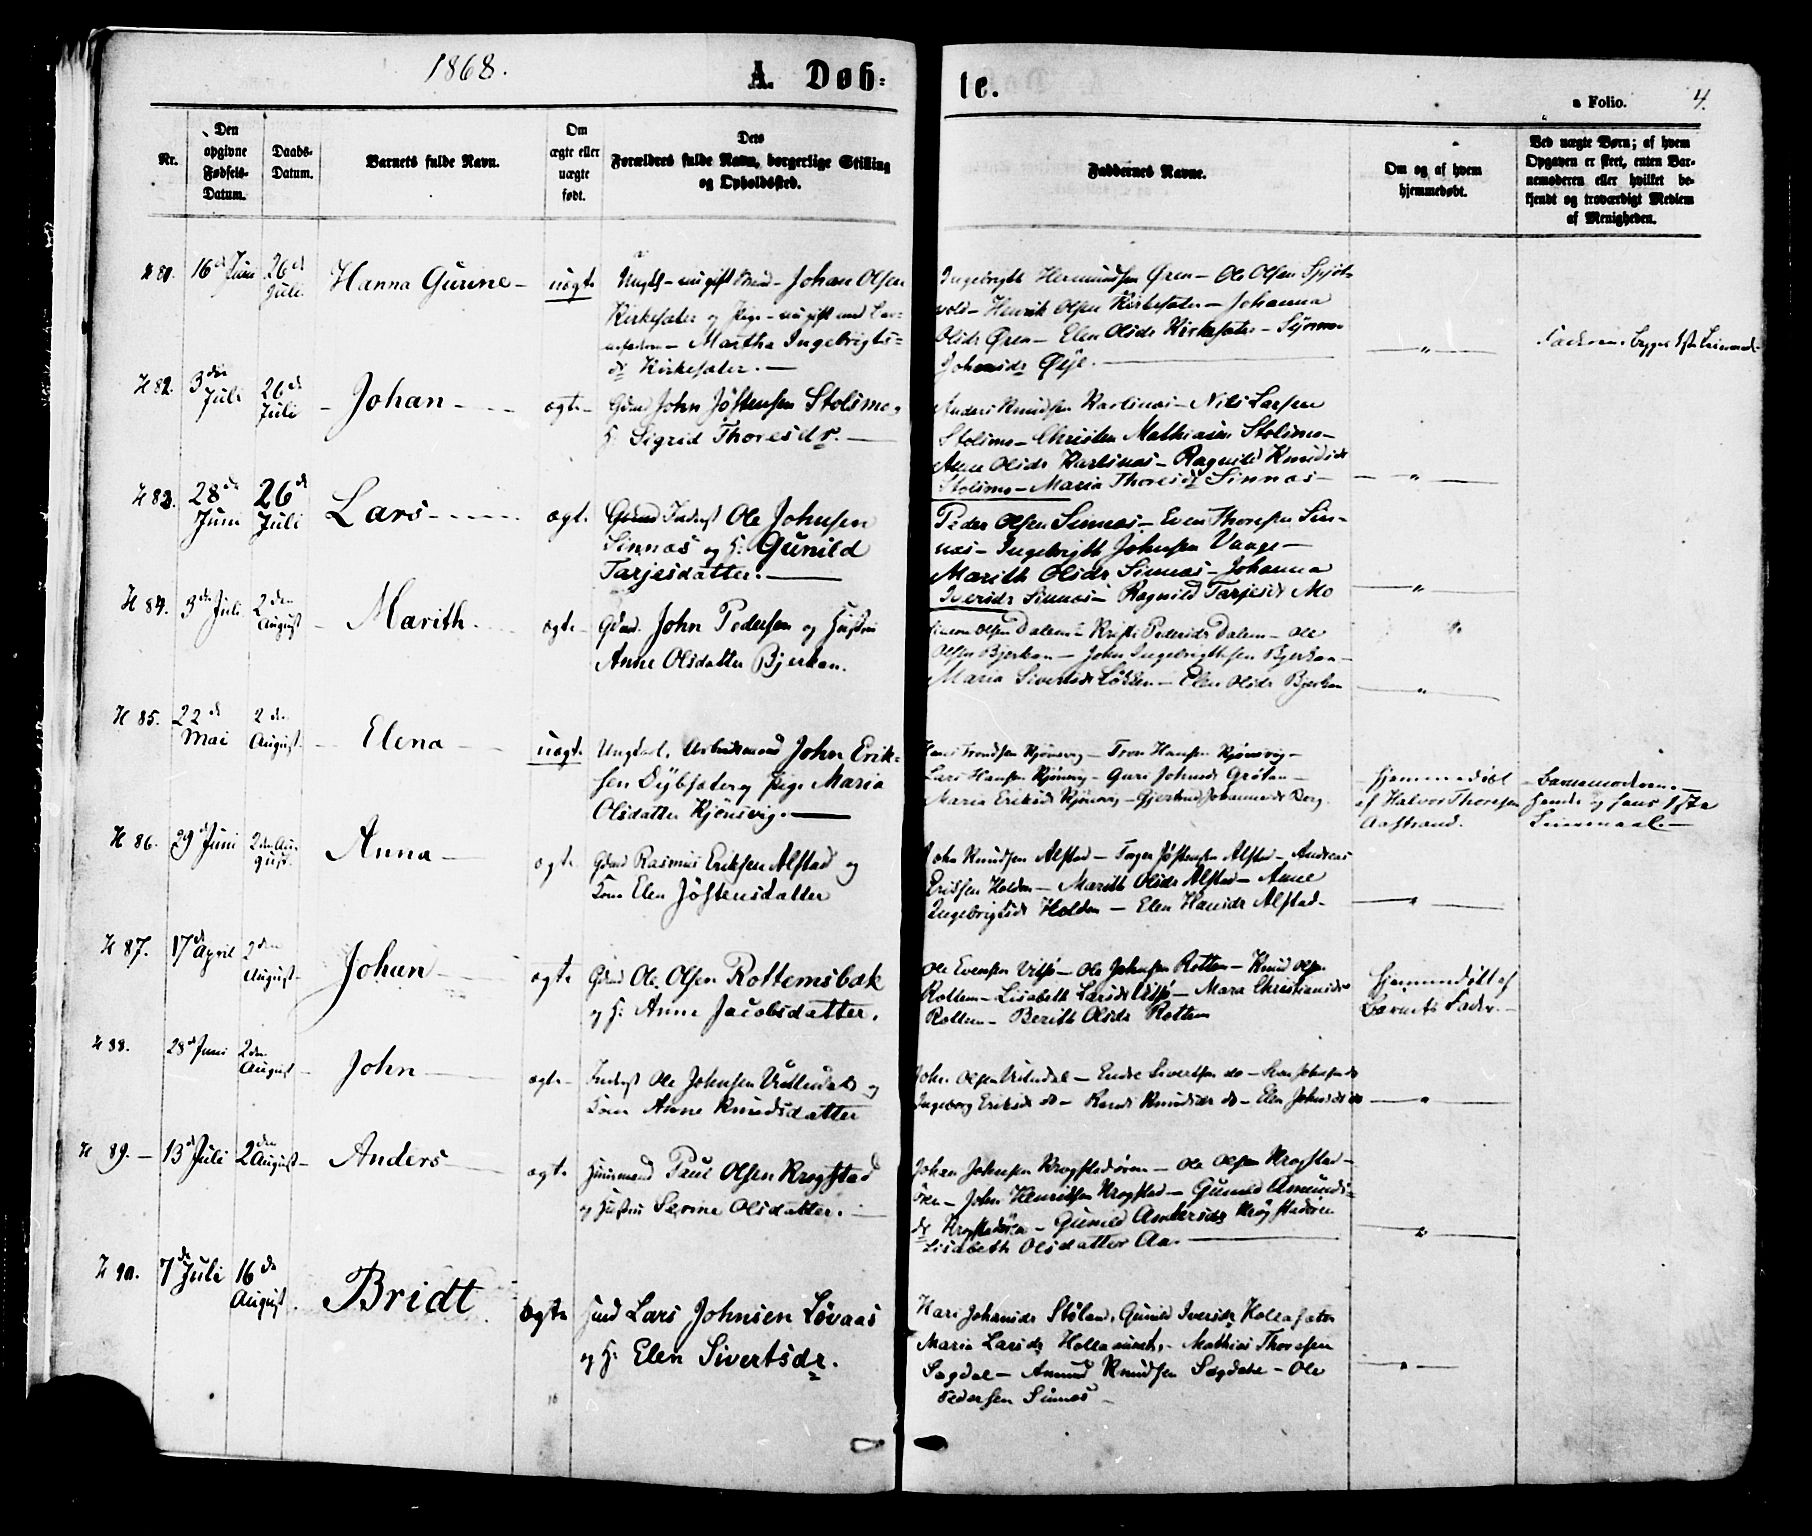 1868.
A. Døb-
te.
a Folio. 4.
Nr.
Den opgivne Fødsels-Datum.
Daabs-Datum.
Barnets fulde Navn.
Om ægte eller uægte født.
Dets Forældres fulde Navn, borgerlige Stilling og Opholdssted.
Faddernes Navne.
Om og af hvem hjemmedøbt.
Ved uægte Børn; af hvem Opgaven er skeet, enten Barnemoderen eller hvilket bekjendt og troværdigt Medlem af Menigheden.
81. 16 de Juni 26 de Juli Hanna Gurine - uægte
Johan Olsen
Kirkesæter og Pige - ugift
Martha Ingebrigts-
dr Kirkesæter. -
Ingebrigt Hermundsen Øren - Ole Olsen
vold - Henrik Olsen Kirkesæter - Johanna
Olsdr Øren - Elen Olsdr Kirkesæter -
Johansdr Øye. -
82. 3 die Juli 26 de Juli - Johan - ægte -
Gmd John Jöstensen Stolsmo,
H. Sigrid Thoresdr. -
Anders Knudsen - Nils Larsen
Stolsmo - Christen Mathiasen Stolsmo -
Ane Olsdr - Ragnild Knudsdr
Stolsmo - Maria Thoresdr Sinnæs -
83. 28 de Juni 26 de Juli Lars - ægt.
Inderst Ole Johnsen
Sinnæs og H. Gunild
Tarjesdatter. -
Peder Olsen Sinnæs - Even Thoresen Sin-
næs - Ingebrigt Johnsen Vaage -
Marith Olsdr Sinnæs - Johanna
Iversdr Sinnæs - Ragnild Tarjesdr Mo
84. 3 die Juli 2 den August - Marith. ægte
Gmd. John Pedersen og Hustru
Anne Olsdatter Bjerkan.
Simon Olsen Dalem - Kristi Pedersdr Dalem - Ole
Olsen Bjerkan - John Ingebrigtsen Bjerkan -
Maria Sivertsdr Løkken - Elen Olsdr Bjerkan
85. 22 de Mai 2 den August - Elena - uægte
Ungkarl, Arbeidsmand John Erik-
sen Dybsæter og Pige Maria
Olsdatter Kjønsvig. -
Hans Trondsen Kjønsvig - Tron Hansen Kjønsvig -
Lars Hansen Kjønsvig - Guri Johnsdr Gröten -
Maria Eriksdr Kjønsvig - Gjertrud Johannesdr Berg.
Hjemmedøbt
af Halvor Thoresen
Aastrand.
Barnemoderen. -
hendes og hans 1ste
Leiermaal. -
86. 29 de Juni 2 den August. Anna - ægte
Gmd Rasmus Eriksen Alstad og
Kone Elen Jöstensdatter
John Knudsen Alstad - Torger Jöstensen Alstad - Andreas
Eriksen Holden - Marith Olsdr Alstad - Anne
Ingebrigtsdr Holden - Elen Hansdr Alstad -
87. 17 de April 2 den August - Johan - ægte
Gmd Ole Olsen Rottemsbæk
og H. Anne Jacobsdatter.
Ole Evensen Vitsö - Ole Johnsen Rottem - Knud Olsen
Rottem - Lisabeth Larsdr Vitsö - Mara Christiansdr
Rottem - Berith Olsdr Rottem
Hjemmedöbt af
Barnets Fader. -
88. 28 de Juni 2 den August - John - ægte -
Inderst Ole Johnsen Vutudal og
Kone Anne Knudsdatter
John Olsen - Endre Sivertsen do -
Ingeborg Eriksdr do - Randi Knudsdr do - Elen Johnsdr do
89. - 13 de Juli 2 den August - Anders - ægte
Huusmand Paul Olsen Krogstad
og Hustru Serine Olsdatter. -
Johan Johnsen Krogstadören - Ole Olsen Krogstad-
ören - John Henriksen Krogstad - Gunild Amunds-
dr Krogstadören - Gunild Andersdr Krogstadören
Lisabeth Olsdatter Aa. -
90. 7 de Juli 16 de August. Bridt ægte
Hmd Lars Johnsen Lövaas
og H. Elen Sivertsdr.
Mari Johansdr Stöland, Gunild Iversdr Hollasæter
Maria Larsdr Hollaaunet, - Mathias Thoresen
Sagdal - Amund Knudsen Sagdal - Ole
Pedersen Sinnæs -